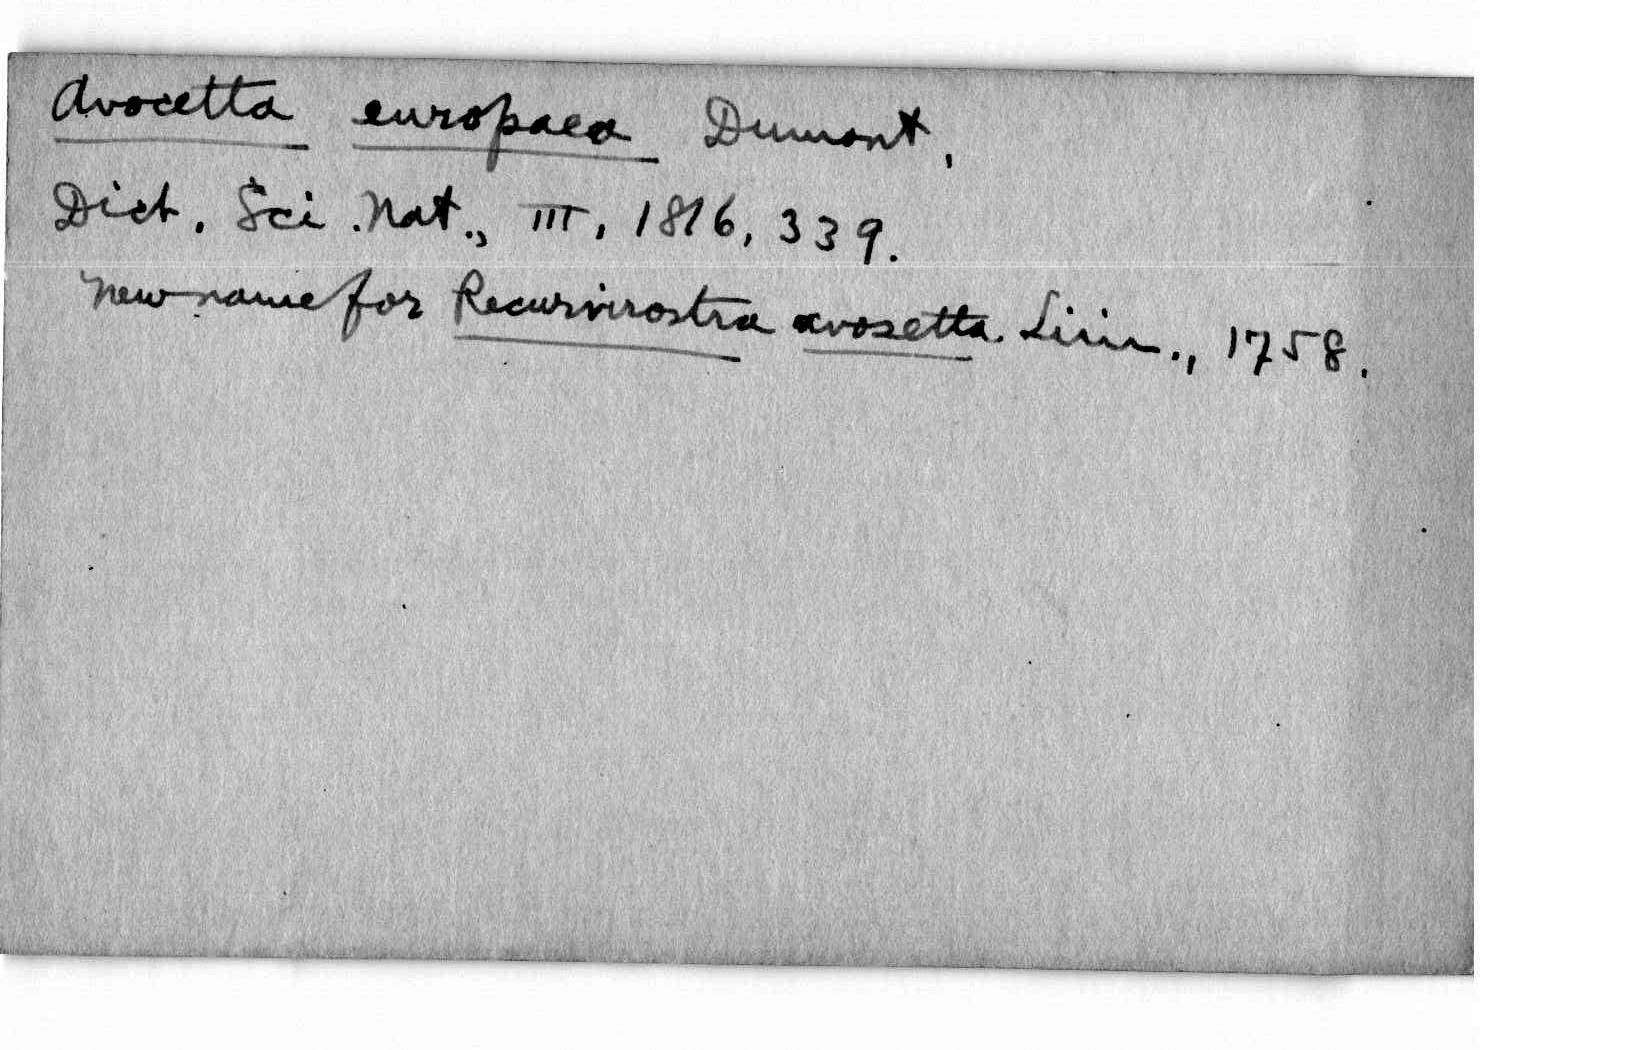 Avocetta europaea Dumont,
Dict. Sci. Nat., III, 1816, 339.
New name for Recurvirostra avosetta. Linn., 1758.